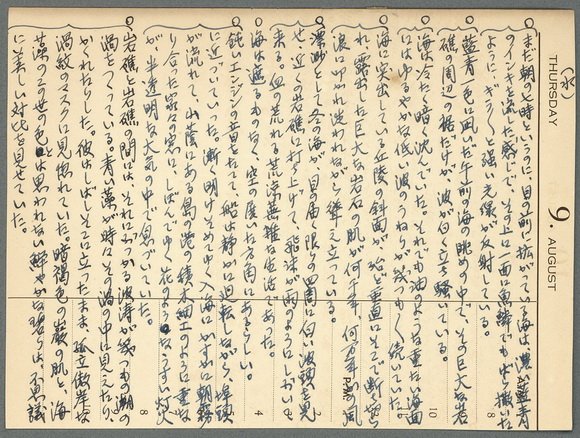 THURSDAY
(水)
9. AUGUST
まだ朝の七時というのに、目の前に拡がっている海は、濃い藍青
のインキを流した感じで、その上に一面に魚鱗でもばら撒いた
ように、ギラギラと強い光線が反射している。
藍青一色に凪いだ午前の海の眺めの中で、その巨大な岩
礁の周辺の裾だけが、波が白く立ち騒いでいる。
海は冷たく暗く沈んでいた。それでも油のような重たい海面
にはゆるやかな低い波のうねりが幾つも続いていた
海に突出している丘陵の斜面が、殆ど垂直にそこで断ち切ら
れ、露出した巨大な岩石の肌が何千年、何万年かの風
浪に叩かれ洗われながら聳え立っている。
として冬の海が、目の届く限りの周囲に白い波頭を見
せ、近くの岩礁に打ち上げて、飛沫が雨のように
来る。血の荒れる荒涼蕪雑な生活であった。
海は遮るものなく、空の展いた方角にあるらしい。
鈍いエンジンの音をたてて、船は静かに廻転しながら、埠頭
に近づいていった。漸く明けそめてゆく入海にかすかに朝霧
が流れて、山蔭にある島の港の積木細工のように重な
り合った家々の窓に、しぼんでゆく花のようなうすい灯火
が、半透明な大気の中で息づいていた。
岩礁と岩礁の間には、それにぶつかる波濤が幾つもの潮の
渦をつくっている。青い藻が時々その渦の中に見えたり、
かくれたりした。彼はしばしそこに立ったまま、孤立傲岸な
渦紋のマスクに見惚れていた。暗褐色の巌の肌と、海
藻のこの世の色とは思われない鮮やかな碧さは不思議
に美しい対比を見せていた。
8
10
P.M.
2
4
6
8